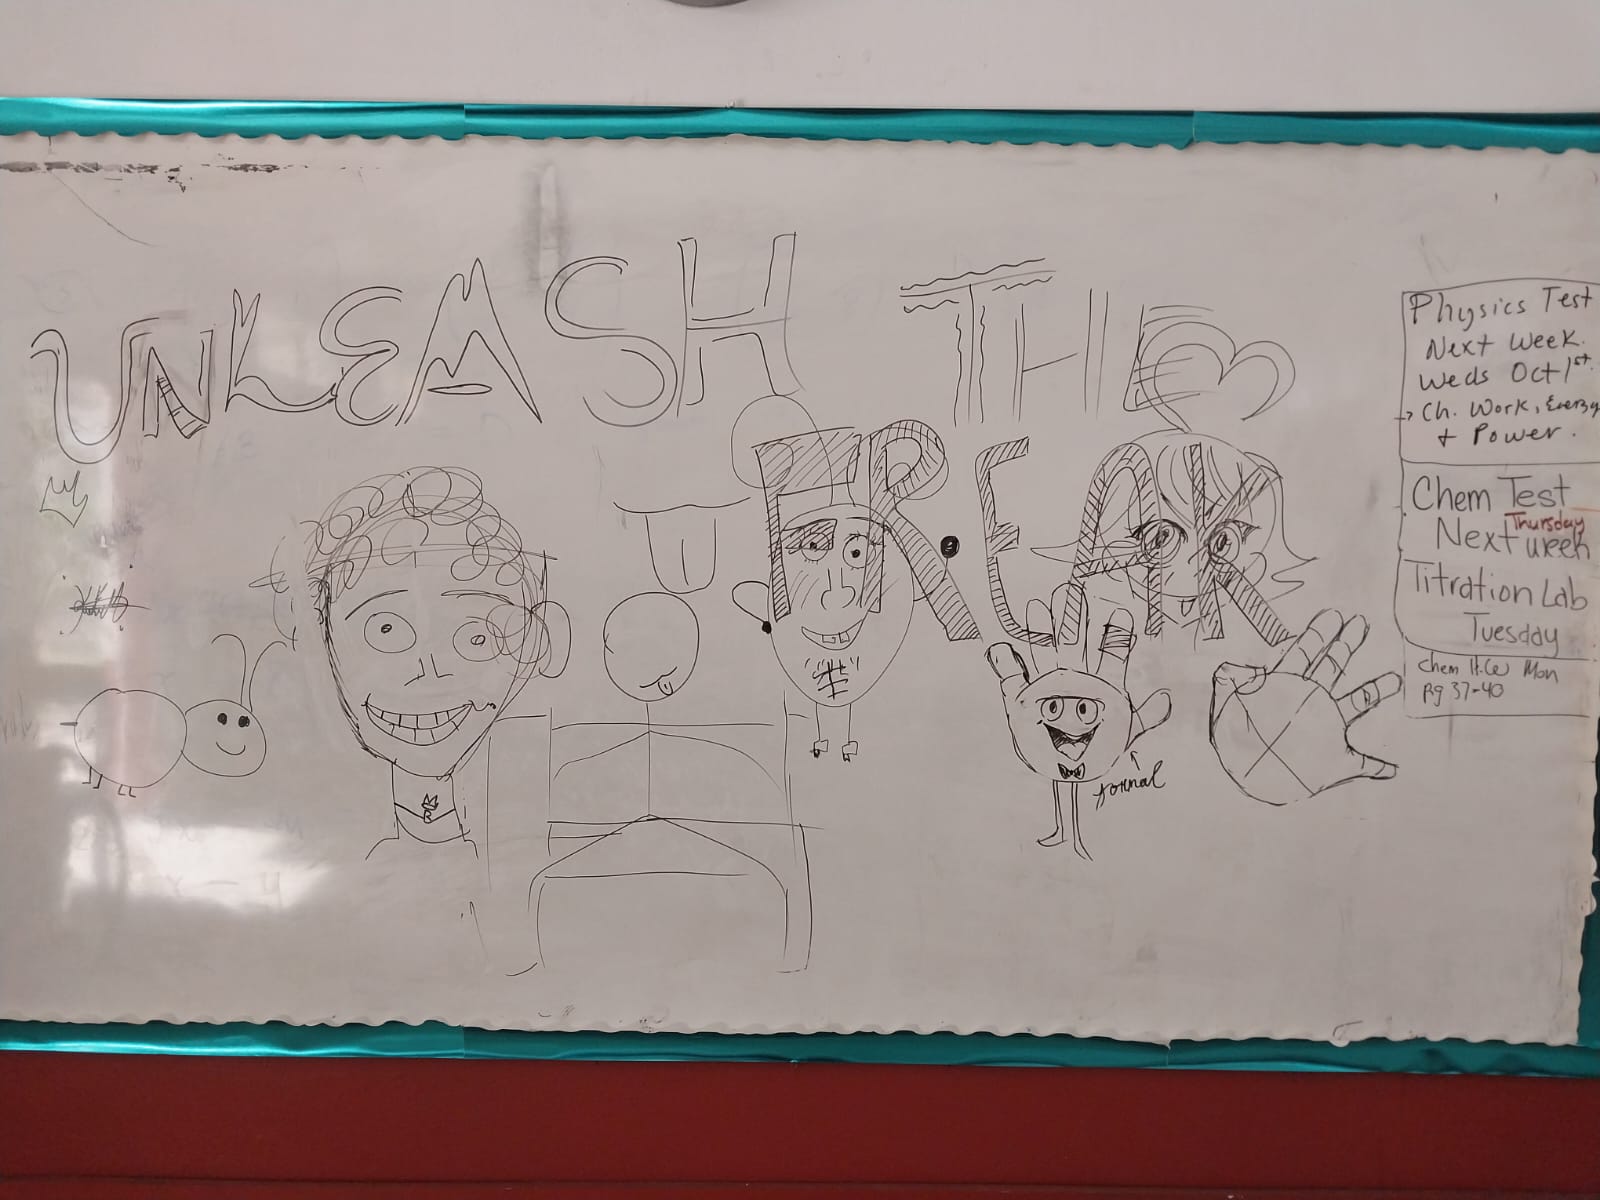 UNLEASH THE
FREAK
formal
Physics Test
Next Week.
Weds Oct 1st.
→ Ch. Work, Energy
+ Power.
Chem Test
Thursday
Next week
Titration Lab
Tuesday
Chem H.W Mon
Pg 37-40